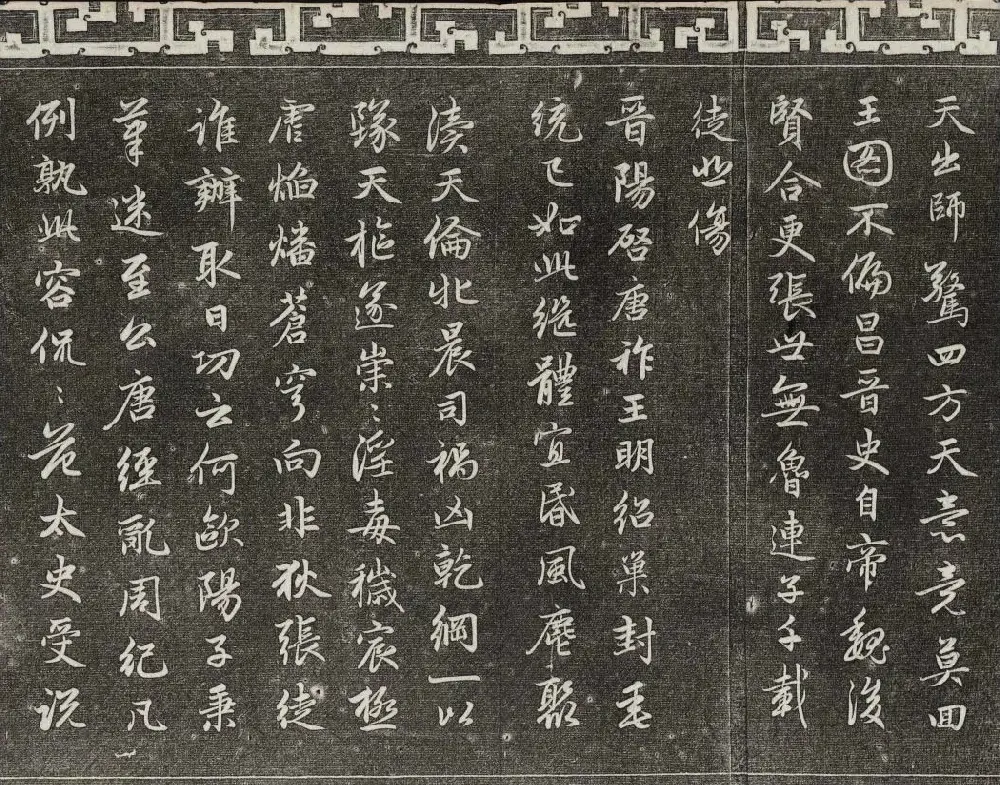 天出師驚四方天意竟莫回
王圖不偏昌晉史自帝魏後
賢合更張世無魯連子千載
徒悲傷
晉陽啓唐祚王明紹巢封垂
統已如此繼體宜昏風麀聚
瀆天倫牝晨司禍凶乾綱一以
隊天樞遂崇〻淫毒穢宸極
虐焰燔蒼穹向非狄張徒
誰辦取日功云何歐陽子秉
筆迷至公唐經亂周紀凡
例孰此容侃〻范太史受說